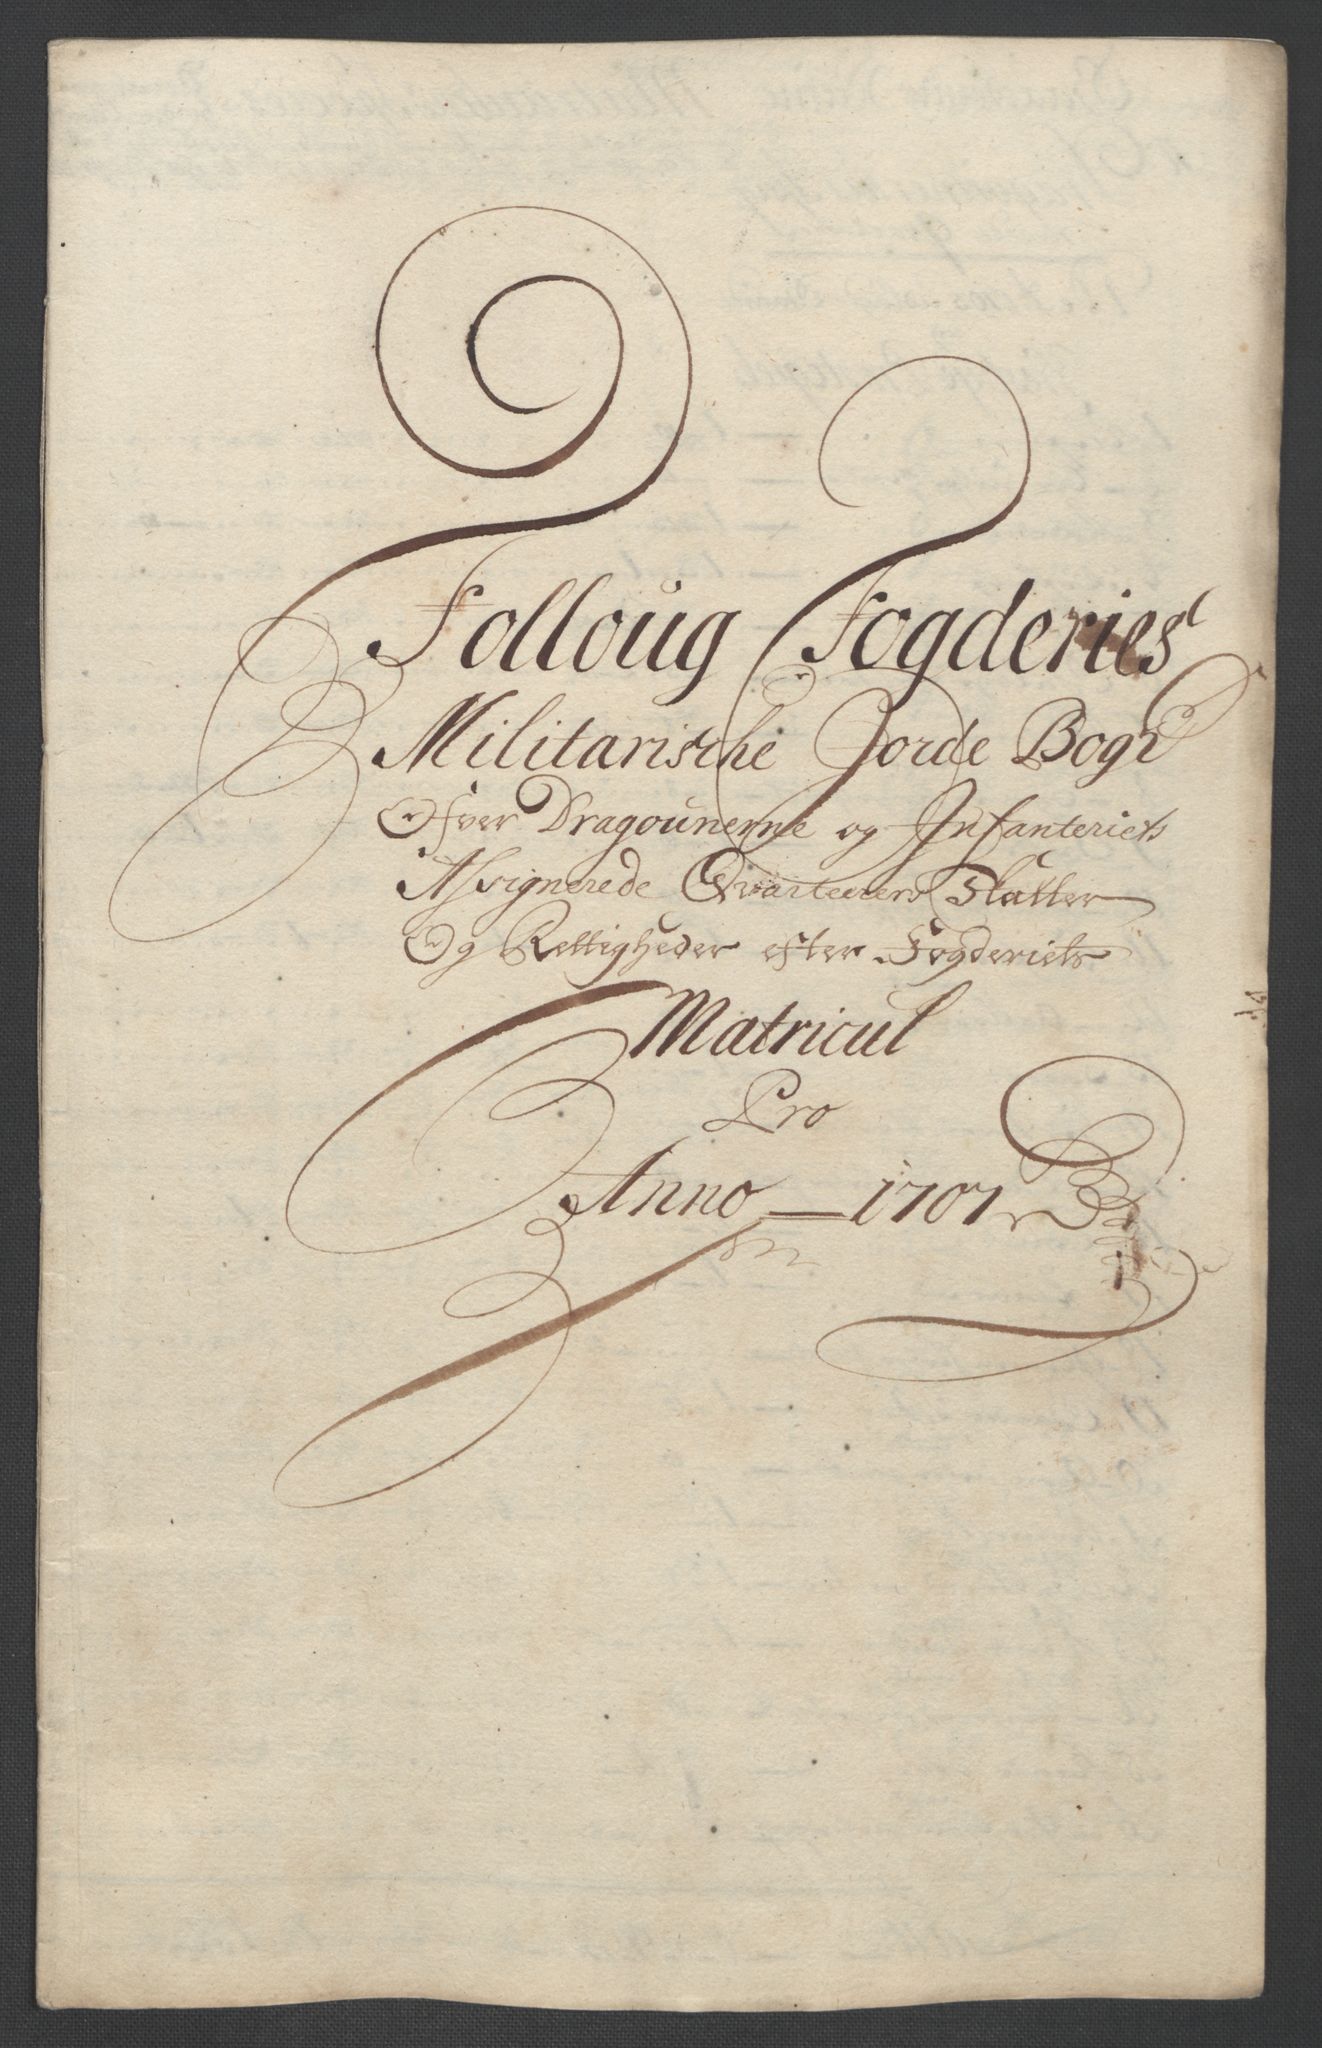 Folloug Fogderies
Militarische Jorde Bog
Ofver Dragounerne og Infanteriets
Assignerede Qvarteerers Skatter
Og Rettigheder efter Fogderiets
Matricul
Pro
Anno 1707